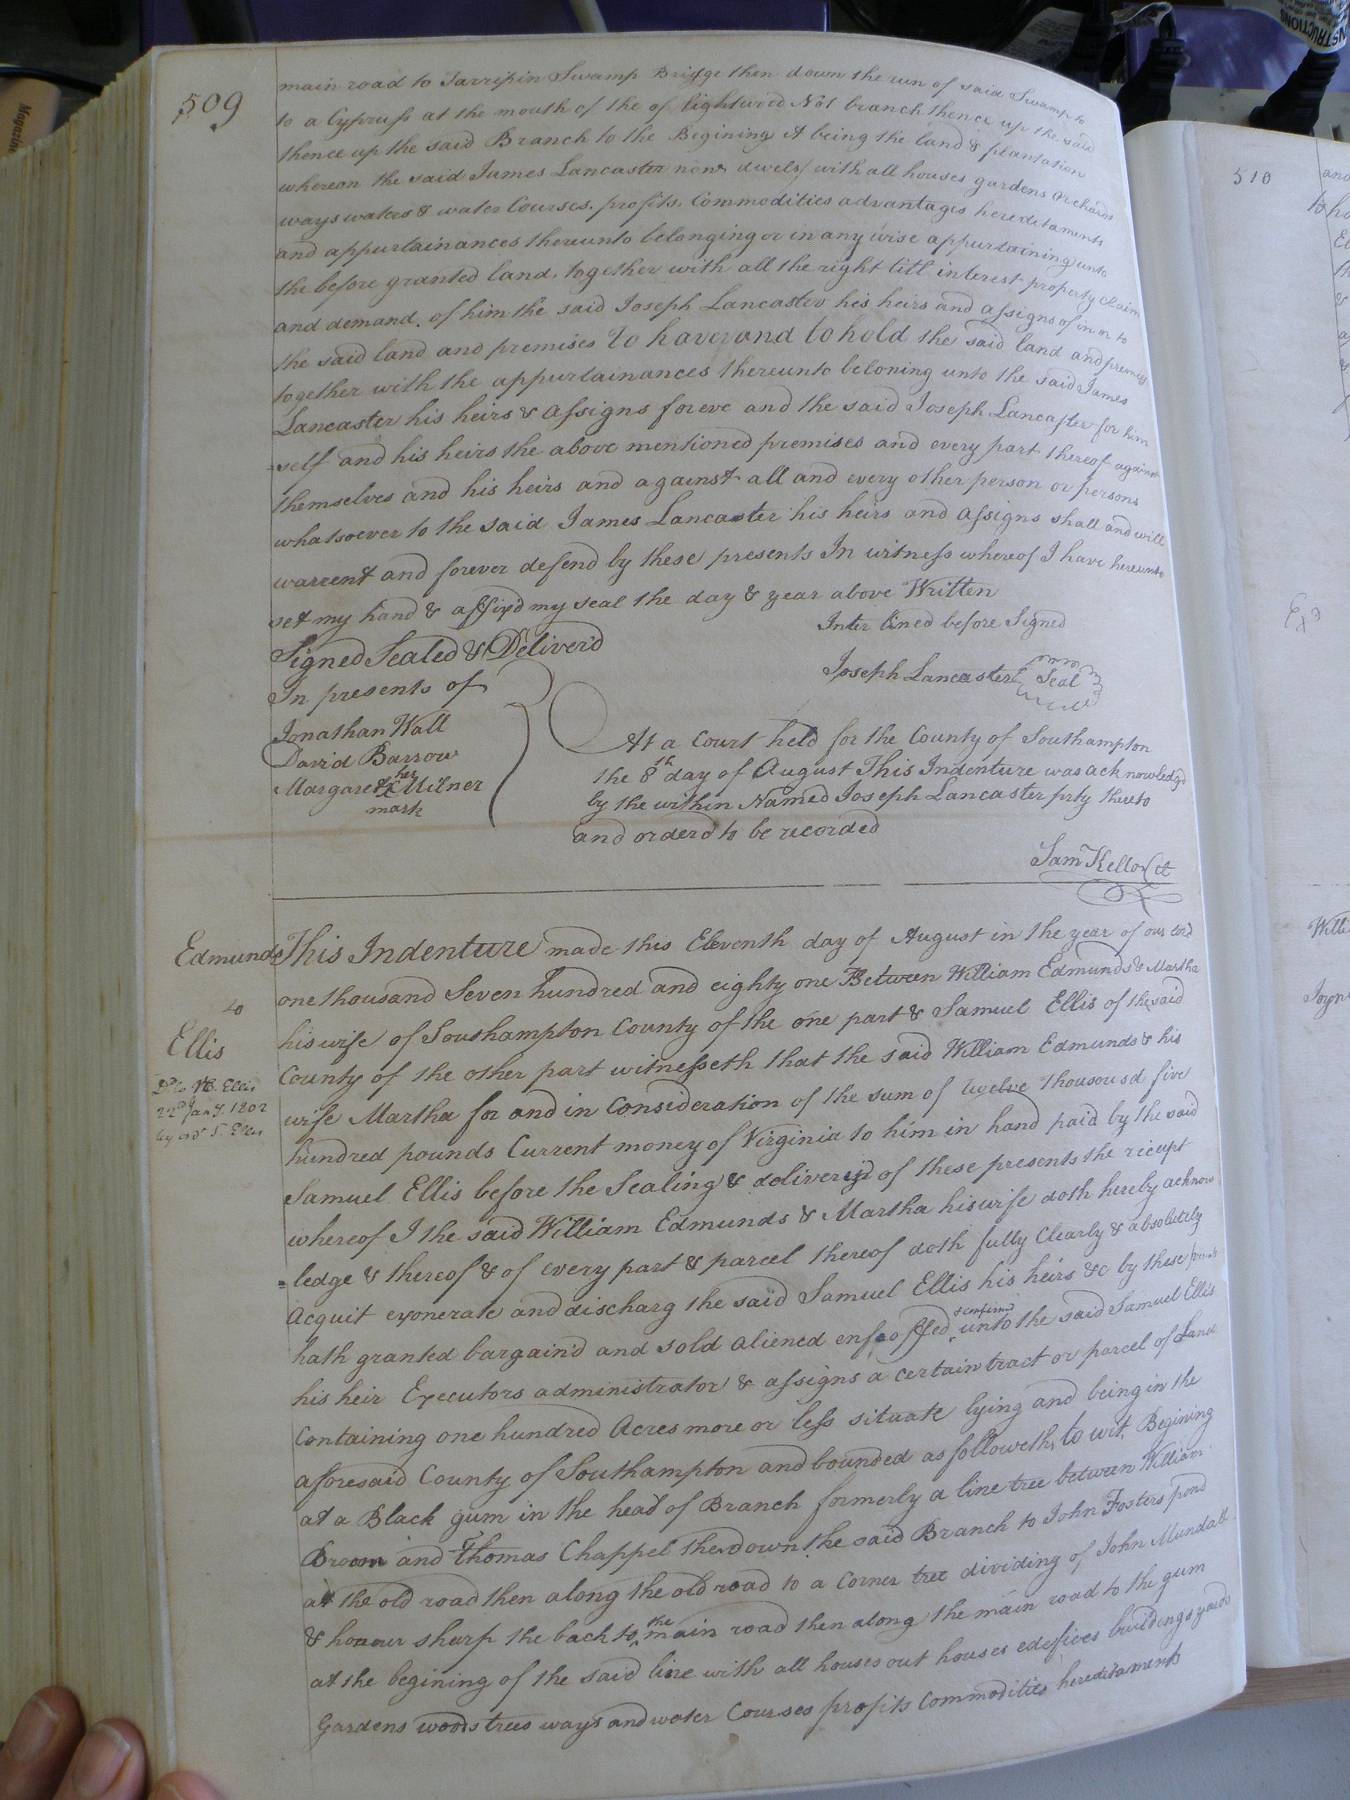 509
main road to Tarripin Swamp Bridge then down the run of said Swamp to
to a Cypress at the mouth of the of lightwood Not branch thence up the said
thence up the said Branch to the Begining it being the land & plantation
whereon the said James Lancaster now dwels with all houses gardens orchards
ways waters & water Courses, profits, Commodities advantages hereditaments
and appurtainances thereunto belonging or in any wise appurtaining unto
the before granted land, together with all the right titl interest property claim
and demand, of him the said Joseph Lancaster his heirs and assigns of in or to
the said land and premises To have and to hold the said land and premises
together with the appurtainances thereunto beloning unto the said James
Lancaster his heirs & assigns foreve and the said Joseph Lancaster for him
-self and his heirs the above mentioned premises and every part thereof against
themselves and his heirs and against all and every other person or persons
whatsoever to the said James Lancaster his heirs and assigns shall and will
warrent and forever defend by these presents In witness whereof I have hereunto
set my hand & affixd my seal the day & year above Written
Inter lined before Signed
Signed Sealed & Deliver'd
In presents of
Joseph Lancaster Seal
Jonathan Wall
David Barrow
Margaret her Milner
mark
At a Court held for the County of Southampton
the 8th day of August This Indenture was acknowledgd
by the within Named Joseph Lancaster prty thereto
and orderd to be recorded
Saml Kello Ct
Edmunds
to
Ellis
22d Jany. 1802
This Indenture made this Eleventh day of August in the year of our lord
one thousand Seven hundred and eighty one Between William Edmunds & Martha
his wife of Southampton County of the one part & Samuel Ellis of the said
County of the other part witnesseth that the said William Edmunds & his
wife Martha for and in Consideration of the sum of twelve thousand five
hundred pounds Current money of Virginia to him in hand paid by the said
Samuel Ellis before the Sealing & delivery of these presents the riceipt
whereof I the said William Edmunds & Martha his wife doth hereby acknow
=ledge & thereof & of every part & parcel thereof doth fully Clearly & absolutely
Acquit exonerate and discharg the said Samuel Ellis his heirs &c by these presents
hath granted bargain'd and sold aliened enfeoffed & confirmd unto the said Samuel Ellis
his heir Executors administrator & assigns a certain tract or parcel of Land
Containing one hundred Acres more or less situate lying and being in the
afforesaid County of Southampton and bounded as followeth, to wit, Begining
at a Black gum in the head of Branch formerly a line tree between William
Broom and Thomas Chappel then down the said Branch to John Fosters pond
at the old road then along the old road to a Corner tree dividing of John Mundall
& honour sharp the back to the main road then along the main road to the gum
at the begining of the said line with all houses out houses edefices buildings yards
Gardens woods trees ways and water Courses profits Commodities hereditaments
510